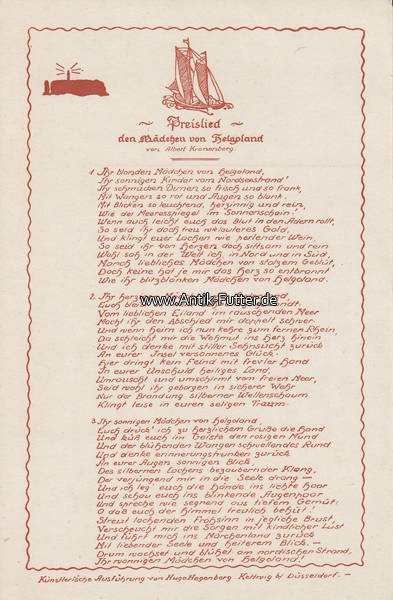 Preislied
den Mädchen von Helgoland
von Albert Kronenberg.
1. Ihr blonden Mädchen von Helgoland,
Ihr sonnigen Kinder vom Nordseestrand!
Ihr schmucken Dirnen so frisch und so frank,
Mit Wangen so rot und Augen so blank.
Mit Blicken so leuchtend, herzinnig und rein,
Wie der Meeresspiegel im Sonnenschein.
Wenn auch leicht euch das Blut in den Adern rollt,
So seid ihr doch treu wie lauteres Gold,
Und klingt euer Lachen wie perlender Wein,
So seid ihr von Herzen doch sittsam und rein
Wohl sah in der Welt ich, in Nord und in Süd,
Manch liebliches Mädchen von stolzem Geblüt,
Doch keine hat je mir das Herz so entbrannt
Wie ihr blitzblanken Mädchen von Helgoland.
www.Antik-Futter.de
2. Ihr
Euch
Vom lieblichen Eiland im rauschenden Meer
Macht ihr den Abschied mir doppelt schwer.
Und wenn heim ich nun kehre zum fernen Rhein,
Da schleicht mir die Wehmut ins Herz hinein
Und ich denke mit stiller Sehnsucht zurück
An eurer Insel versonnenes Glück.
Hier dringt kein Feind mit frevler Hand
In eurer Unschuld heiliges Land,
Umrauscht und umschirmt vom freien Meer,
Seid wohl ihr geborgen in sicherer Wehr
Nur der Brandung silberner Wellenschaum
Klingt leise in euren seligen Traum.
3. Ihr sonnigen Mädchen von Helgoland,
Euch drück' ich zu herzlichem Gruße die Hand
Und küß euch im Geiste den rosigen Mund
Und der blühenden Wangen schwellendes Rund
Und denke erinnerungstrunken zurück
An eurer Augen sonnigen Blick,
Des silbernen Lachens bezaubernder Klang,
Der verjüngend mir in die Seele drang —
Und ich leg' euch die Hände ins lichte Haar
Und schau euch ins blinkende Augenpaar
Und spreche wie segnend aus tiefem Gemüt:
O daß euch der Himmel treulich behüt!
Streut lachenden Frohsinn in jegliche Brust,
Verscheucht mir die Sorgen mit kindlicher Lust
Und führt mich ins Märchenland zurück
Mit liebender Seele und heiterem Blick. —
Drum wachset und blühet am nordischen Strand,
Ihr wonnigen Mädchen von Helgoland!
Künstlerische Ausführung von Hugo Hegenberg. Kettwig b/ Düsseldorf. —